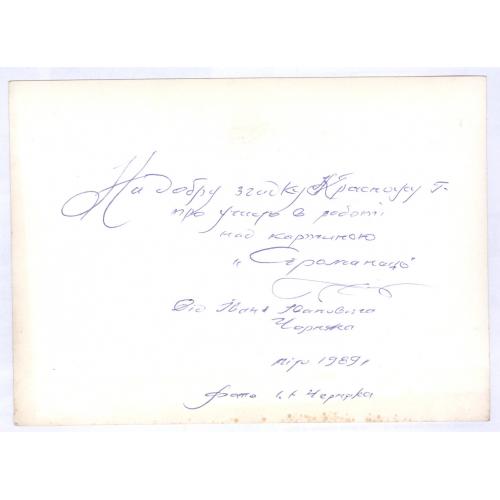 На добру згадку Красношу Г.
про участь в роботі
над картиною
"
Від Івана Івановича
Черняка
1989р
фото І. І. Черняка